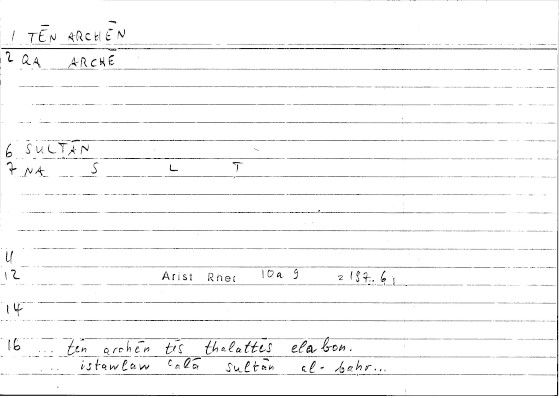 1 TĒN ARCHĒN
2 QA ARCHĒ
6 SULTĀN
7 NA S L T
11
12 Arist Rhet 10a 9 = 197.6;
14
16 ... tēn archēn tīs thalattēs elabon.
... istawlaw ʿalā sultān al-bahr...